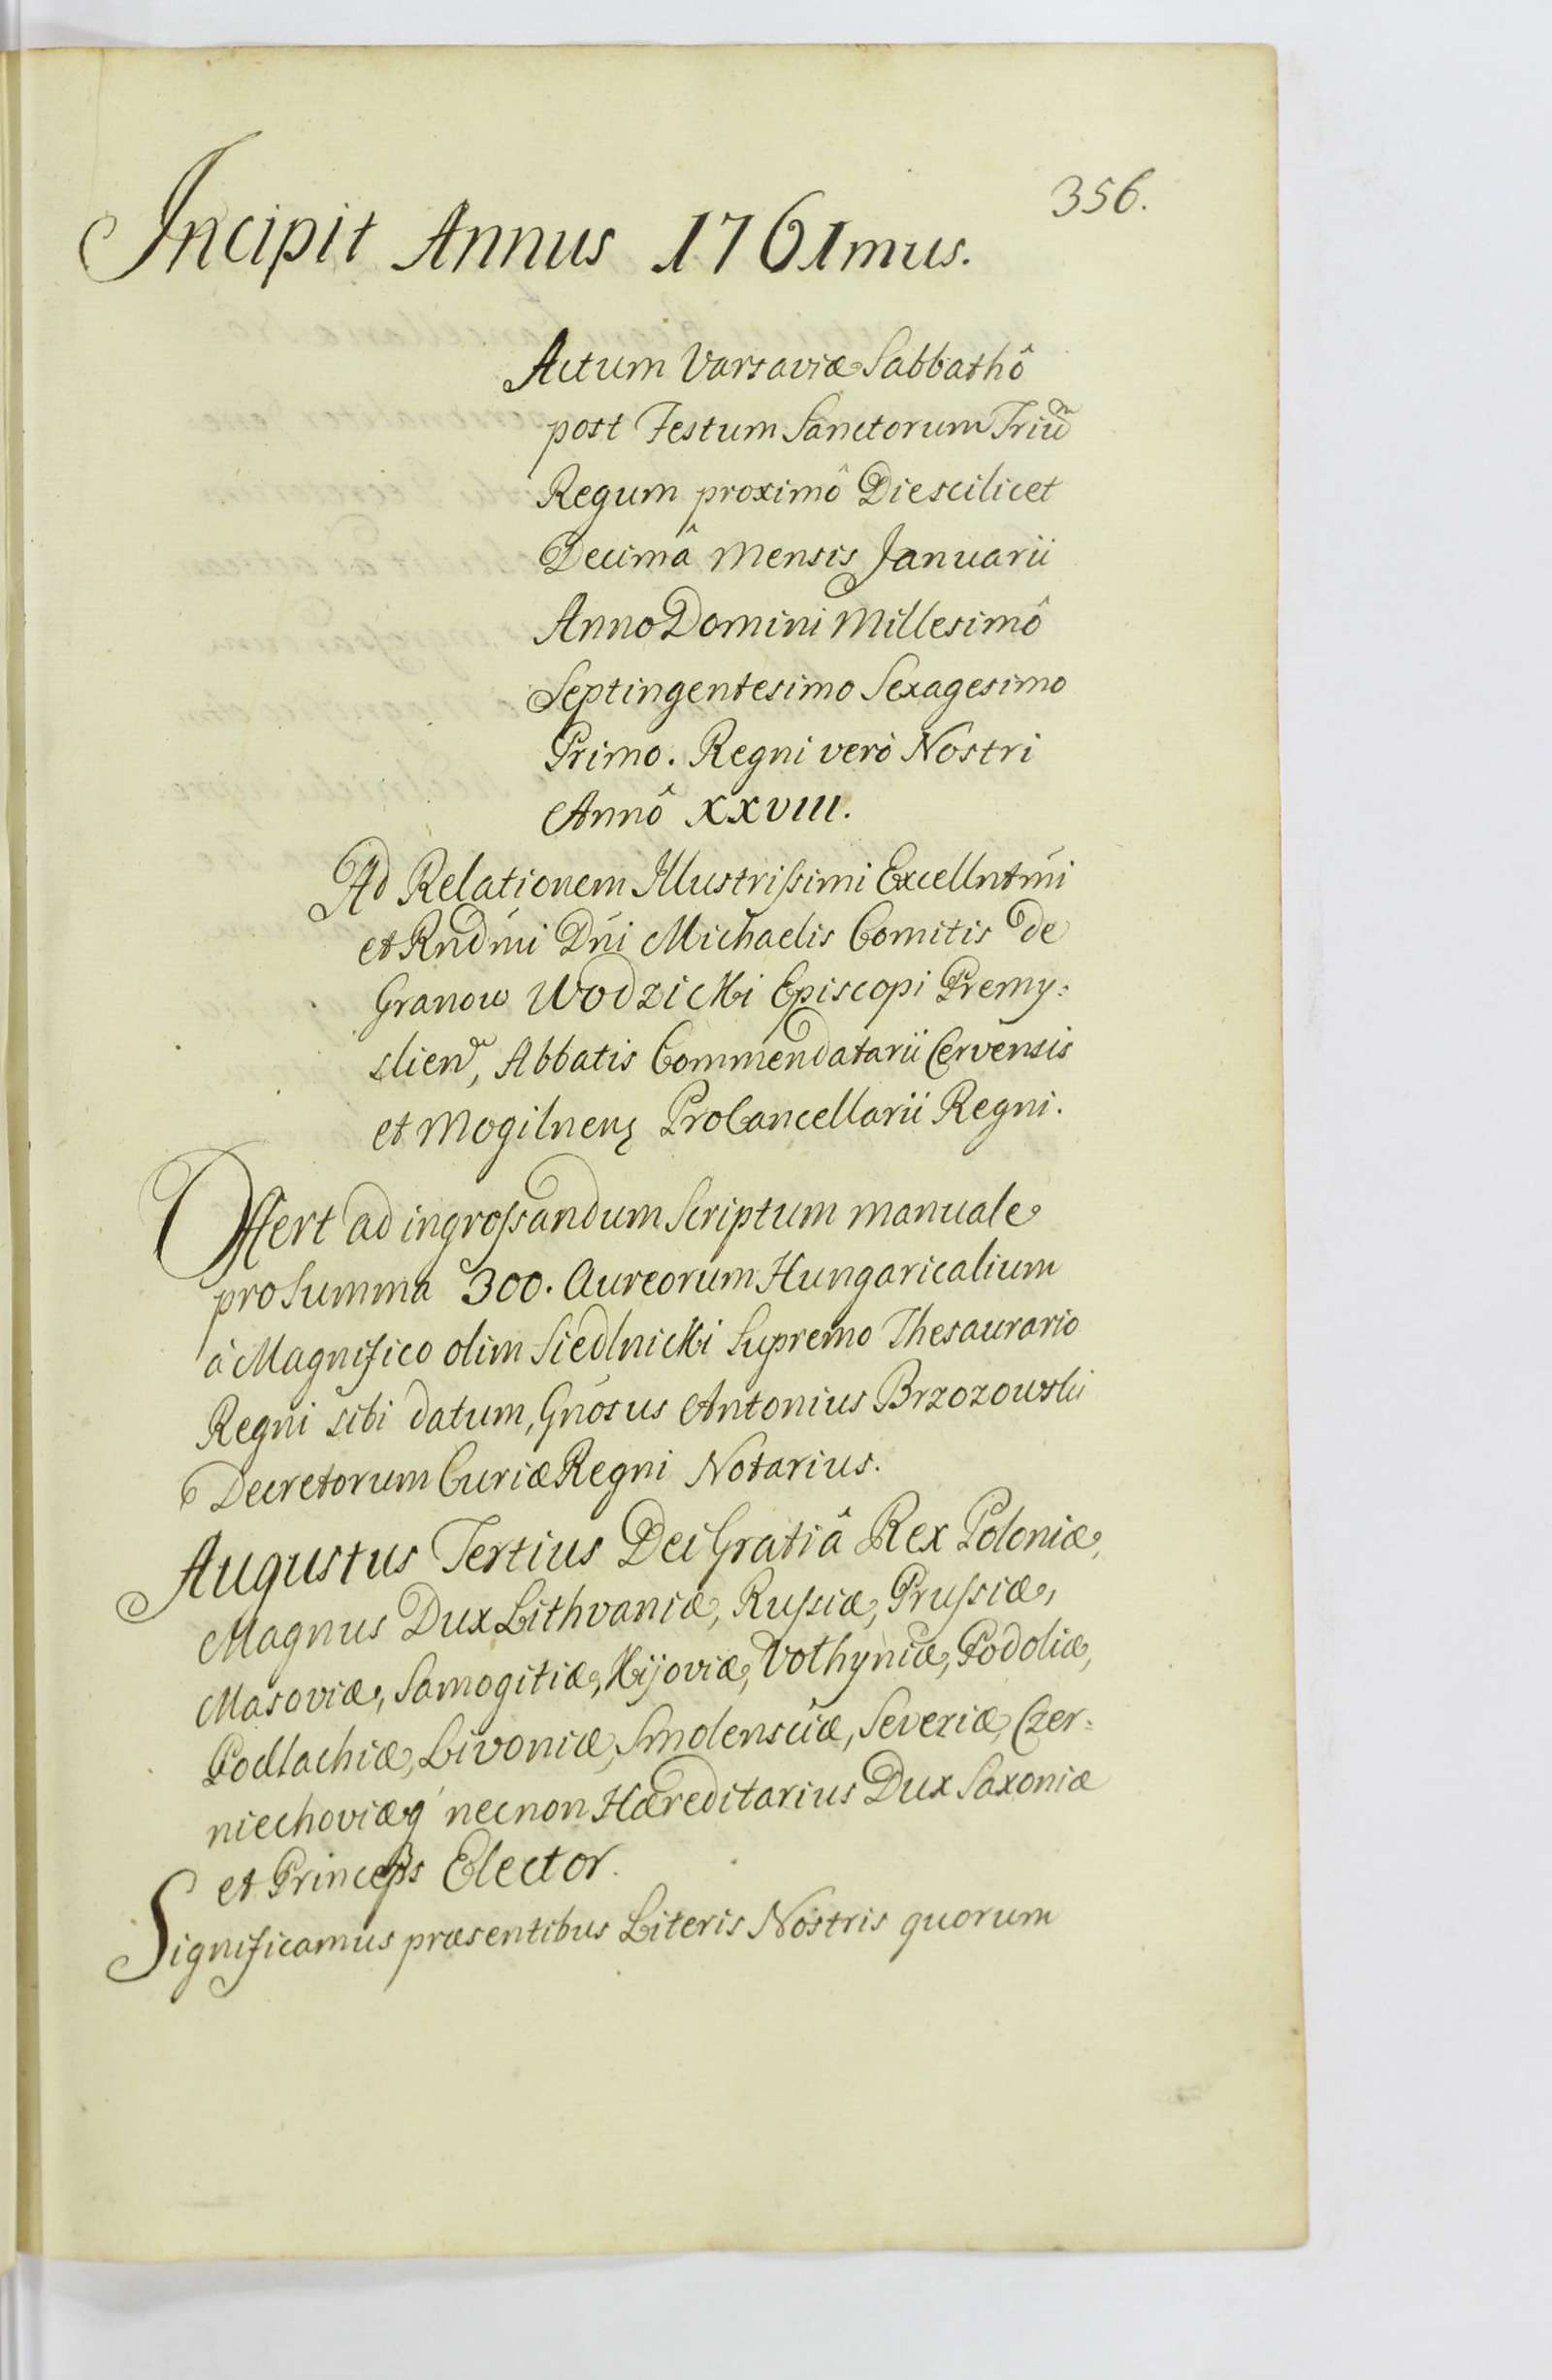 356.
Incipit Annus 1761mus.
Actum Varsaviæ Sabbathô
post Festum Sanctorum Triũ
Regum proximô Die scilicet
Decimâ Mensis Januarii
Anno Domini Millesimô
Septingentesimo Sexagesimo
Primo. Regni verò Nostri
Annô XXVIII.
Ad Relationem Illustrissimi Excellntmi
et Rndmi Dni Michaelis Comitis de
Granow Wodzicki Episcopi Premy:
slien, Abbatis Commendatarii Cervensis
et Mogilnens ProCancellarii Regni.
Offert ad ingrossandum Scriptum manuale
pro Summa 300. Aureorum Hungaricalium
à Magnifico olim Siedlnicki Supremo Thesaurario
Regni sibi datum, Gnosus Antonius Brzozowski
Decretorum Curiæ Regni Notarius.
Augustus Tertius Dei Gratiâ Rex Poloniæ,
Magnus Dux Lithvaniæ, Russiæ, Prussiæ,
Masoviæ, Samogitiæ, Kijoviæ, Volhyniæ, Podoliæ,
Podlachiæ, Livoniæ, Smolensciæ, Severiæ, Czer:
niechoviæq necnon Hæreditarius Dux Saxoniæ
et Princeps Elector.
Significamus præsentibus Literis Nostris quorum